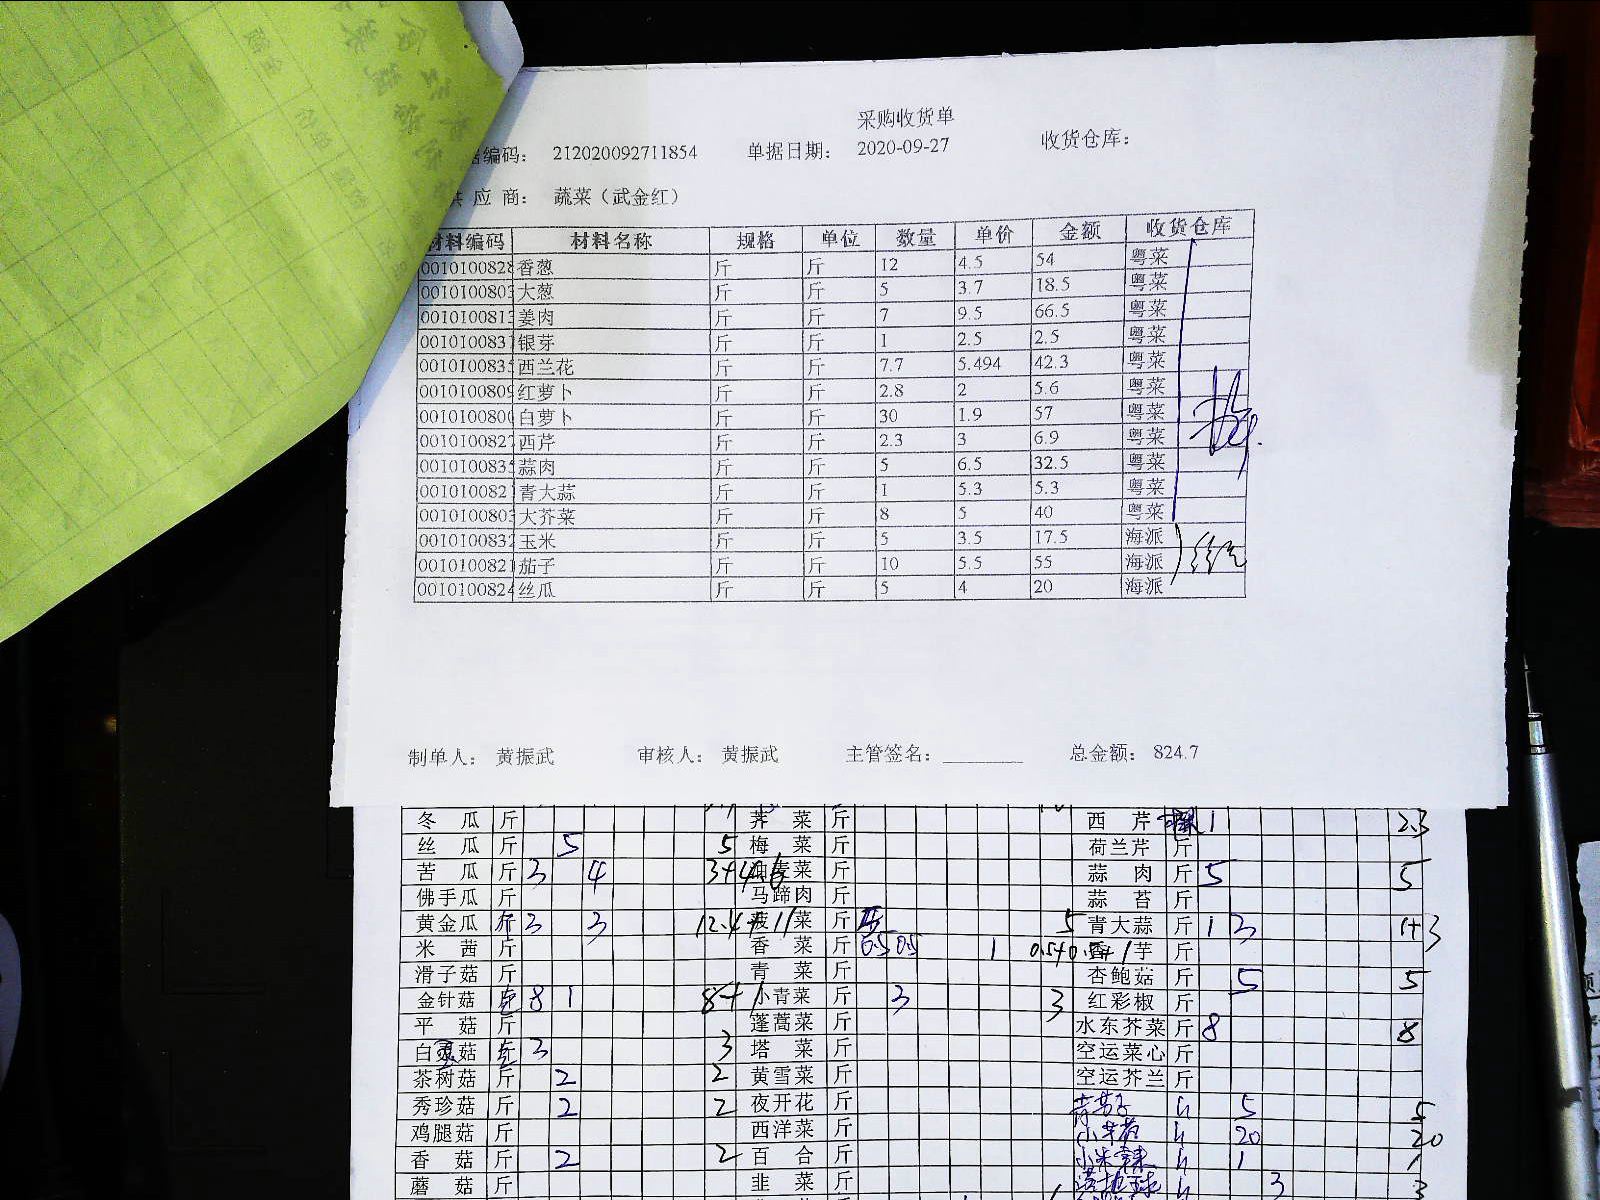 采购收货单
编码： 212020092711854 单据日期： 2020-09-27 收货仓库：
应 商： 蔬菜（武金红）
材料编码 材料名称 规格 单位 数量 单价 金额 收货仓库
0010100828 香葱 斤 斤 12 4.5 54 粤菜
001010080 大葱 斤 斤 5 3.7 18.5 粤菜
001010081 姜肉 斤 斤 7 9.5 66.5 粤菜
001010083 银芽 斤 斤 1 2.5 2.5 粤菜
001010083 西兰花 斤 斤 7.7 5.494 42.3 粤菜
0010100809 红萝卜 斤 斤 2.8 2 5.6 粤菜
001010080 白萝卜 斤 斤 30 1.9 57 粤菜
001010082 西芹 斤 斤 2.3 3 6.9 粤菜
001010083 蒜肉 斤 斤 5 6.5 32.5 粤菜
001010082 青大蒜 斤 斤 1 5.3 5.3 粤菜
001010080 大芥菜 斤 斤 8 5 40 粤菜
001010083 玉米 斤 斤 5 3.5 17.5 海派
001010082 茄子 斤 斤 10 5.5 55 海派
0010100824 丝瓜 斤 斤 5 4 20 海派
制单人： 黄振武 审核人： 黄振武 主管签名： 总金额： 824.7
冬 瓜 斤 荠 菜 斤 西 芹 1 2.3
丝 瓜 斤 5 5 梅 菜 斤 荷兰芹 斤
苦 瓜 斤 3 4 3+4 麦菜 斤 蒜 肉 斤 5 5
佛手瓜 斤 马蹄肉 斤 蒜 苔 斤
黄金瓜 斤 3 3 菠 菜 斤 5 青大蒜 斤 1 3 1+3
米 茜 斤 香 菜 斤 0.5 0.5 1 0.5+0.5+1 香 芋 斤
滑子菇 斤 青 菜 斤 杏鲍菇 斤 5 5
金针菇 8 1 8+1 小青菜 斤 3 3 红彩椒 斤
平 菇 斤 蓬蒿菜 斤 水东芥菜 斤 8 8
白灵菇 3 3 塔 菜 斤 空运菜心 斤
茶树菇 斤 2 2 黄雪菜 斤 空运芥兰 斤
秀珍菇 斤 2 2 夜开花 斤 5 5
鸡腿菇 斤 西洋菜 斤 20 20
香 菇 斤 2 2 百 合 斤 小米辣 1 1
蘑 菇 斤 韭 菜 斤 3 3